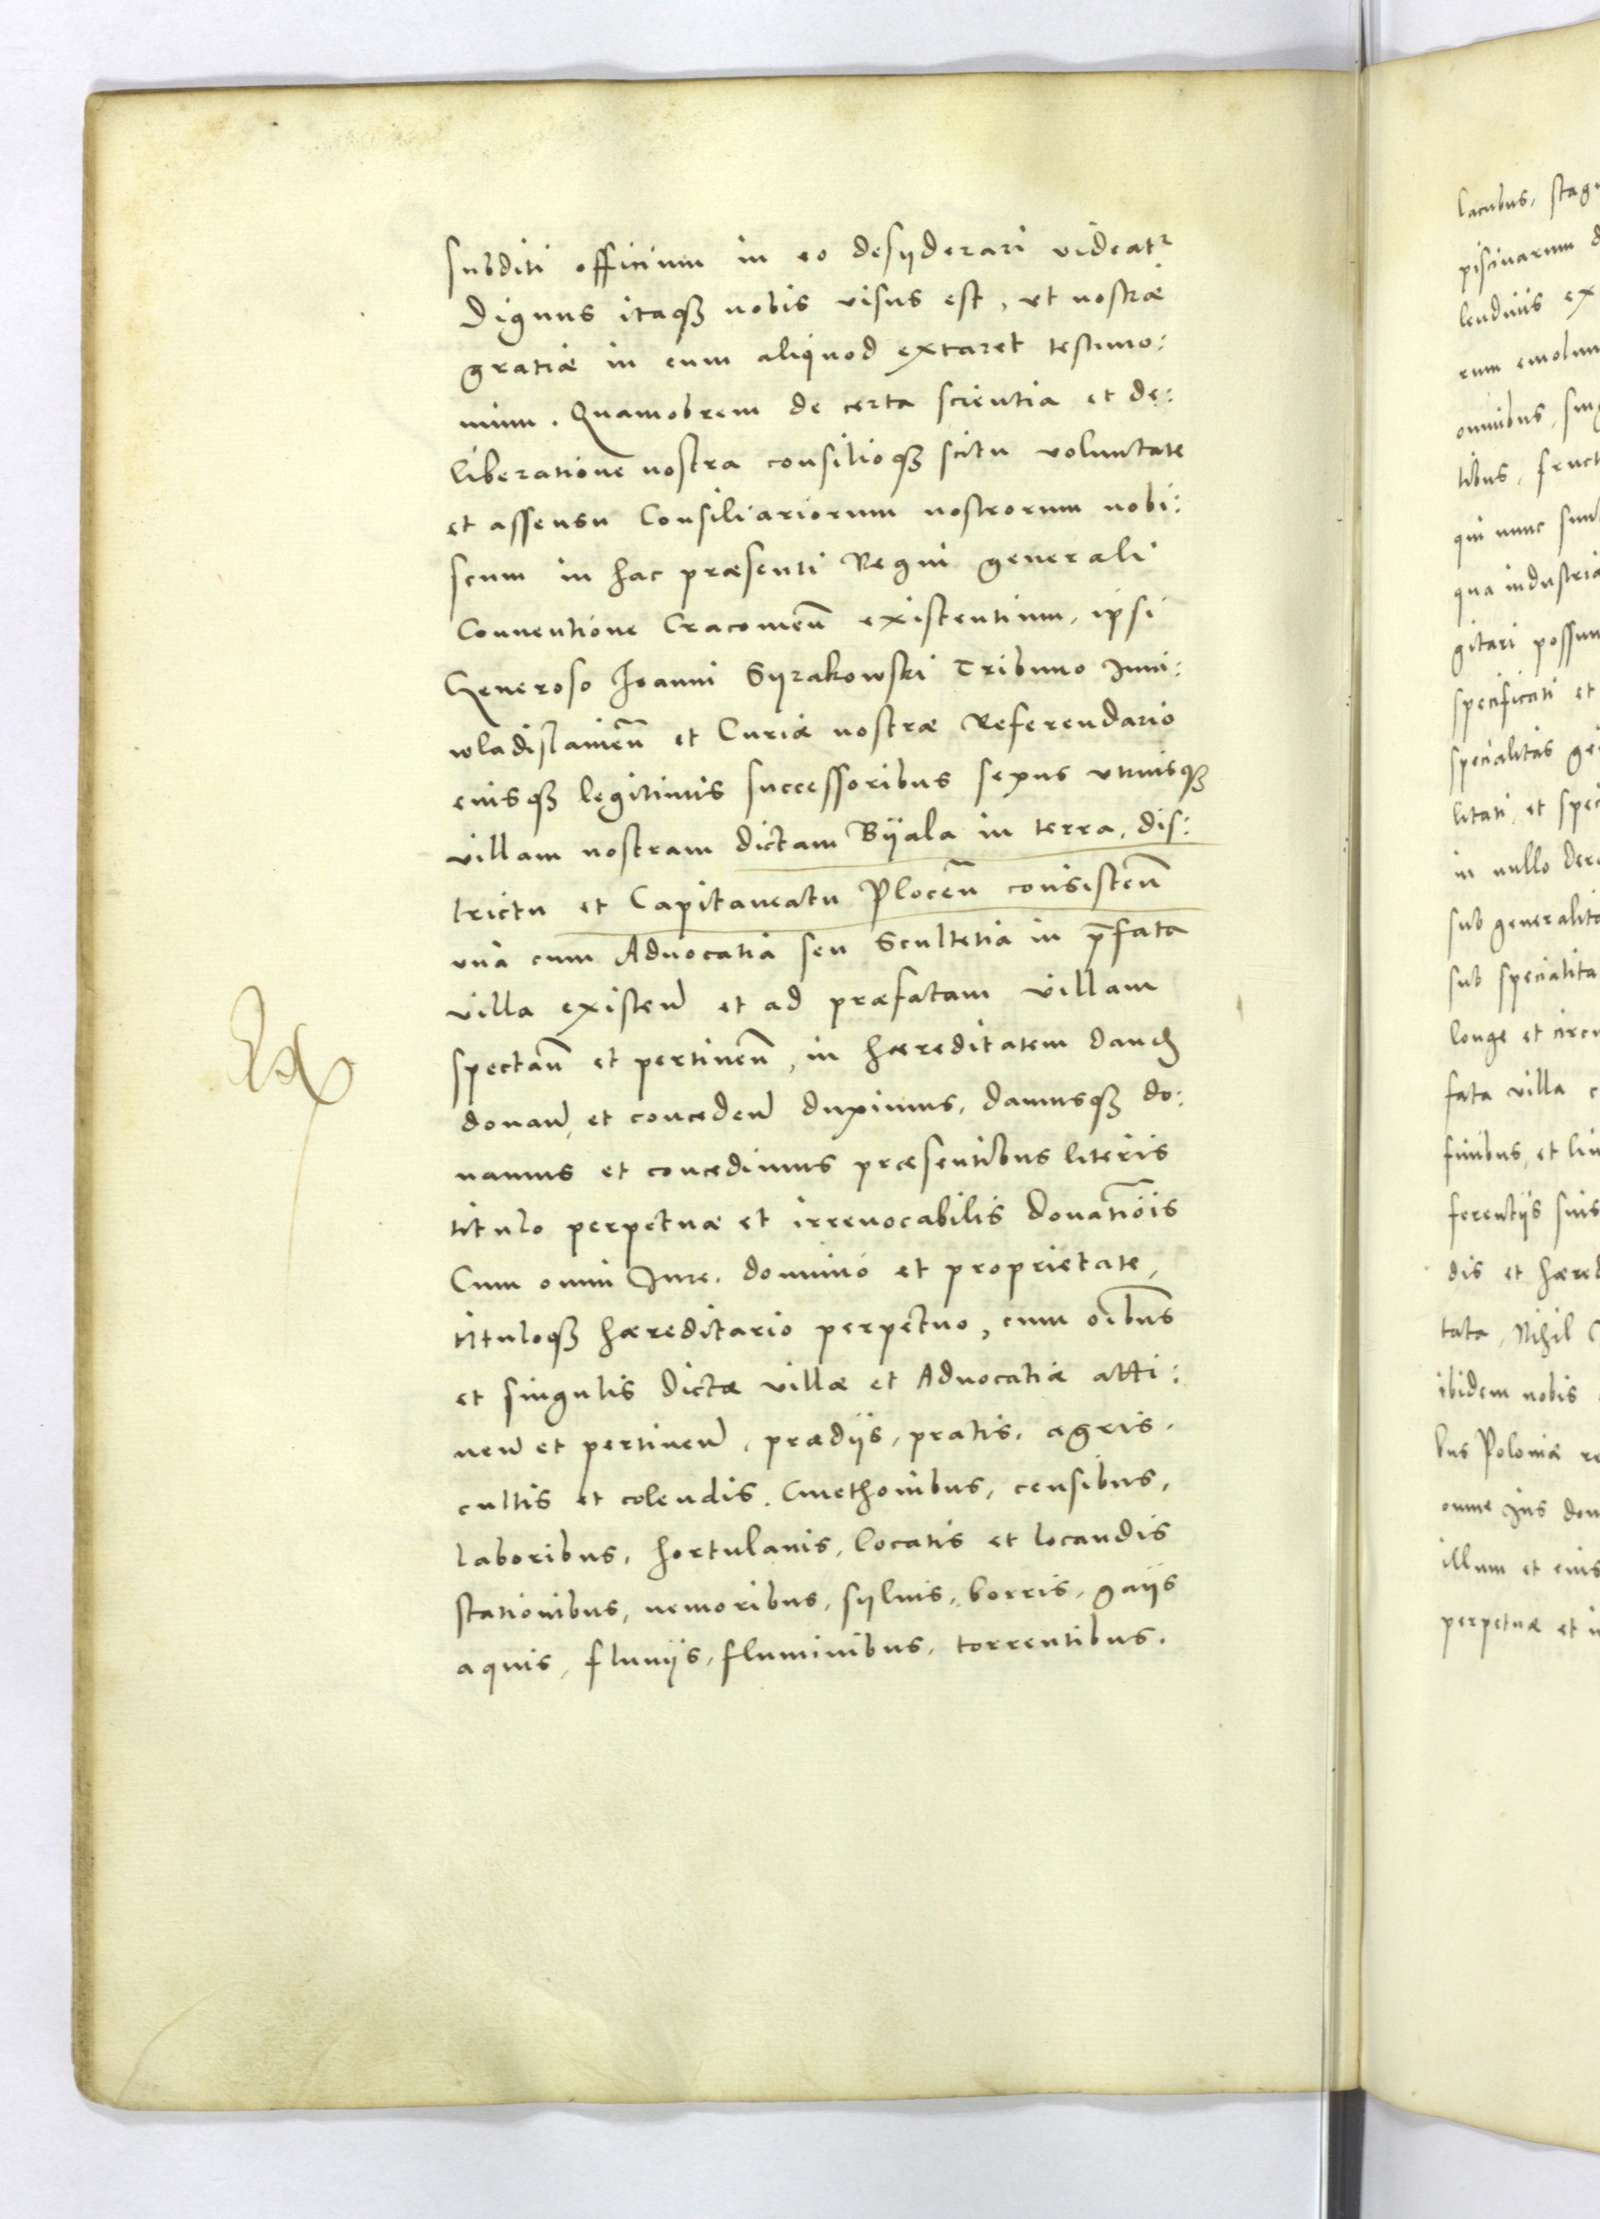 subditi officium in eo desyderari videatr
Dignus itaq3 nobis visus est, vt nostræ
gratiæ in eum aliquod extaret testimo:
nium. Quamobrem de certa scientia et de:
liberatione nostra consilioq3 scitu voluntate
et assensu Consiliariorum nostrorum nobi:
scum in hac præsenti Regni generali
Conuentione Cracouień existentium, ipsi
Generoso Joanni Syrakowski Tribuno Juni:
wladislauień et Curiæ nostræ Referendario
eiusq3 legitimis successoribus sexus vtriusq3
villam nostram dictam Byala in terra, dis:
trictu et Capitaneatu Ploceń consisteń
vná cum Aduocatia seu Scultetia in p̄fata
villa existeń et ad præfatam villam
spectań et pertineń, in hæreditatem dand
donań, et concedeń duximus, damusq3 do:
namus et concedimus præsentibus literis
titulo perpetuæ et irreuocabilis donatiois
Cum omni Jure, dominio et proprietate,
tituloq3 hæreditario perpetuo, cum oibus
et singulis dictæ villæ et Aduocatiæ atti:
neń et pertineń, prædijs, pratis, agris,
cultis et colendis, Cmethonibus, censibus,
laboribus, hortulanis, locatis et locandis
stationibus, nemoribus, syluis, borris, gaijs
aquis, fluuijs, fluminibus, torrentibus,
lacubus,
piscinarum
ex
rum
omnibus,
tibus,
qui nunc
qua industria
gitari
specificati et
specialitas
litati, et
in nullo
sub
sub
longe et
fata villa
finibus, et
ferentijs suis
dis et
tata, Nihil
ibidem nobis
bus Poloniæ
omne Jus
illum et
perpetuæ et